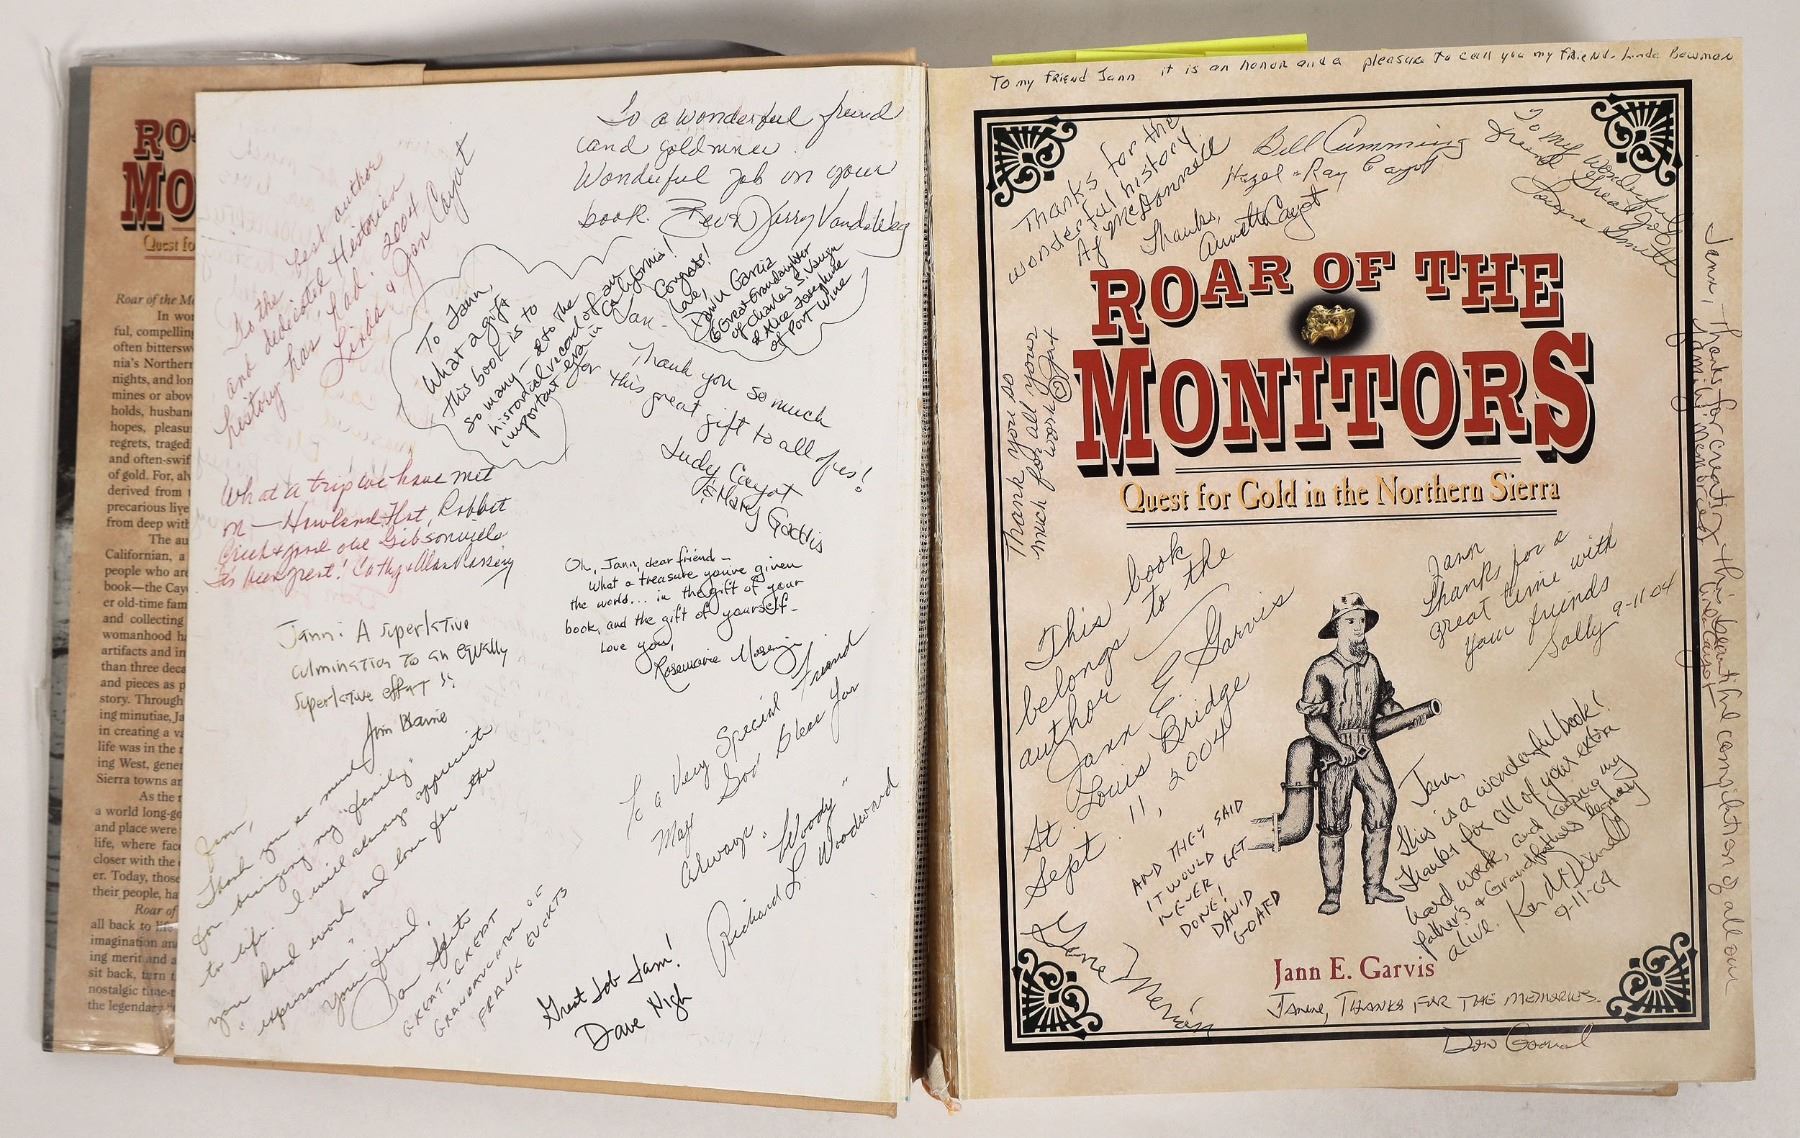 ROAR
MO
Quest fo
Roar of the Mo
In wor
ful, compelling
often bittersw
nia's Northern
nights, and lon
mines or abov
holds, husban
hopes, pleasu
regrets, traged
and often-swif
of gold. For, alv
derived from
precarious live
from deep with
The au
Californian, a
people who are
book—the Cay
er old-time fam
and collecting
womanhood ha
artifacts and in
than three deca
and pieces as p
story. Through
ing minutiae, Ja
in creating a va
life was in the r
ing West, gener
Sierra towns ar
As the r
a world long-go
and place were
life, where face
closer with the
er. Today, those
their people, ha
Roar of
all back to life
imagination an
ing merit and a
sit back, turn t
nostalgic time-t
the legendary
To a wonderful friend
and goldminer.
Wonderful job on your
book. Bev & Jerry
To the best author
and dedicated Historian
history has had! 2004
Linda & Jan Cayot
To Jann,
What a gift
this book is to
so many — & to the
historical record of an
important era in California!
Congrats!
Love,
Dawn Garcia
Great Grandaughter
of Charles S.
& Alice Josephine
of Port Wine
Jan.
Thank you so much
for this great
gift to all of us!
Judy Cayot
& Mary
What a trip we have met
on — Howland Flat, Rabbit
Creek & good ole Gibsonville
It's been great! Cathy & Alan
Oh, Jann, dear friend —
What a treasure you've given
the world... in the gift of your
book, and the gift of yourself —
Love you,
Rosemarie
Jann: A superlative
culmination to an equally
superlative effort!!
Jim
To a Very Special Friend
May God bless you
Always "Woody"
Richard L. Woodward
Jann,
Thank you so much
for bringing my "family"
to life. I will always appreciate
your hard work and love for the
"expressmen".
Your friend,
GREAT-GREAT
GRANDDAUGHTER OF
FRANK EVERTS
Great Job Jam!
Dave Nigh
To my friend Jann it is an honor and a pleasure to call you my friend. Linda Bowman
Thanks for the
wonderful history
Al McDonnell
Bill Cumming
Hazel & Ray Cayot
Thanks,
Annette Cayot
To my wonderful
friend Great Job
Smith
ROAR OF THE
MONITORS
Quest for Gold in the Northern Sierra
Thank you so
much for all your
work Jan
Jann, Thanks for creating this beautiful compilation of all our
family memories
Cayot
This book
belongs to the
author
Jann E. Garvis
At Louis Bridge
Sept. 11, 2004
Jann
Thanks for a
great time with
your friends
Sally 9-11-04
AND THEY SAID
IT WOULD
NEVER GET
DONE!
DAVID
GOARD
Jann,
This is a wonderful book!
Thanks for all of your extra
hard work, and keeping my
father's & Grandfathers legacy
alive.
9-11-04
Jann E. Garvis
Janne, THANKS FOR THE MEMORIES.
Don